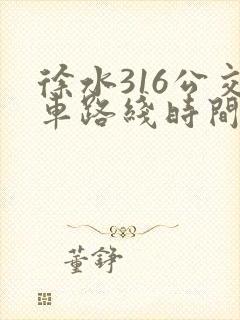 徐水316公交
車路綫時間
董錚